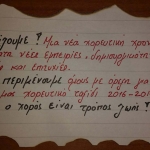 Μια νέα χορευτική χρον
νέες εμπειρίες, δημιουργικότητ
και επιτυχίες.
περιμένουμε όλους με όρεξη για
μας χορευτικό ταξίδι 2016-201
ο χορός είναι τρόπος ζωής!